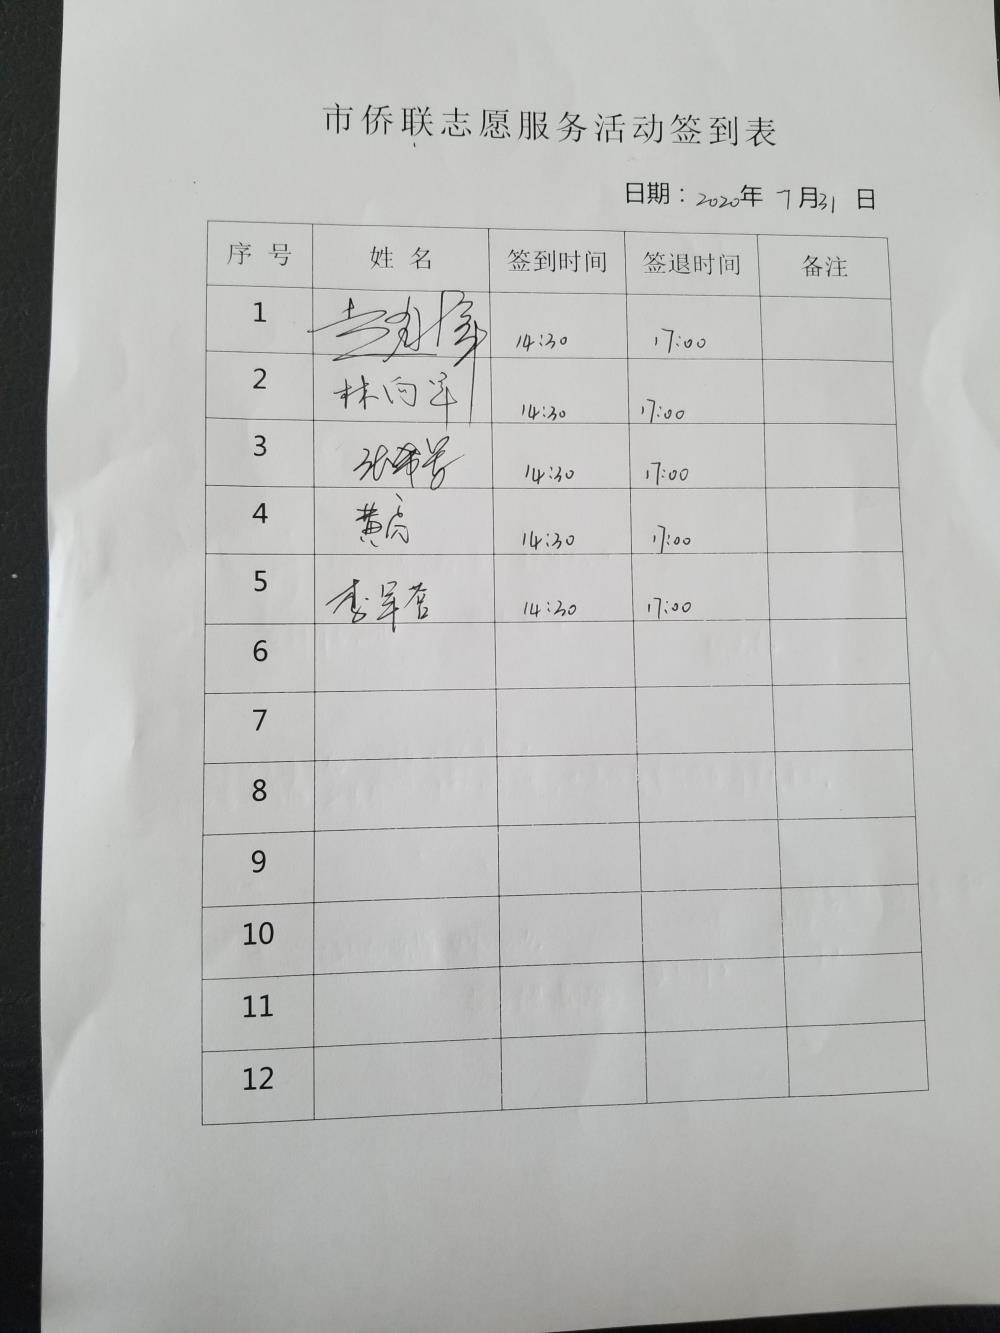 市侨联志愿服务活动签到表
日期：2020年 7月31 日
序 号 姓 名 签到时间 签退时间 备注
1 14:30 17:00
2 林向军 14:30 17:00
3 张希芳 14:30 17:00
4 黄亮 14:30 17:00
5 李军营 14:30 17:00
6
7
8
9
10
11
12